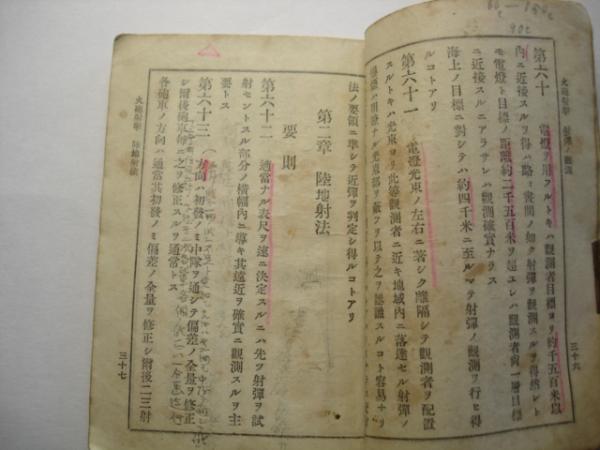 火砲射撃　射彈ノ觀測
三十六
第六十　電燈ヲ用フルトキハ觀測者目標ヨリ約千五百米以
內ニ近接スルヲ得ハ略〻晝間ノ如ク射彈ヲ觀測スルヲ得然レト
モ電燈ト目標ノ距離約二千五百米ヲ超ユレハ觀測者尙一層目標
ニ近接スルニアラサレハ觀測確實ナラス
海上ノ目標ニ對シテハ約四千米ニ至ルマテ射彈ノ觀測ヲ行ヒ得
ルコトアリ
第六十一　電燈光束ノ左右ニ著シク離隔シテ觀測者ヲ配置
スルトキハ光束ヨリ此等觀測者ニ近キ地域內ニ落達セル射彈ノ
ナル光束部ヲ蔽フヲ以テ之ヲ認識スルコト容易ナリ
法ノ要領ニ準シテ近彈ヲ判定シ得ルコトアリ
第二章　陸地射法
要則
第六十二　適當ナル表尺ヲ速ニ決定スルニハ先ツ射彈ヲ試
射セントスル部分ノ橫幅內ニ導キ其遠近ヲ確實ニ觀測スルヲ主
要トス
第六十三　方向ハ初發ノミ中隊ヲ通シテ偏差ノ全量ヲ修正
シ爾後砲車每ニ之ヲ修正スルヲ通常トス
各砲車ノ方向ハ通常其初發ノミ偏差ノ全量ヲ修正シ爾後二三射
火砲射擊　陸地射法
三十七